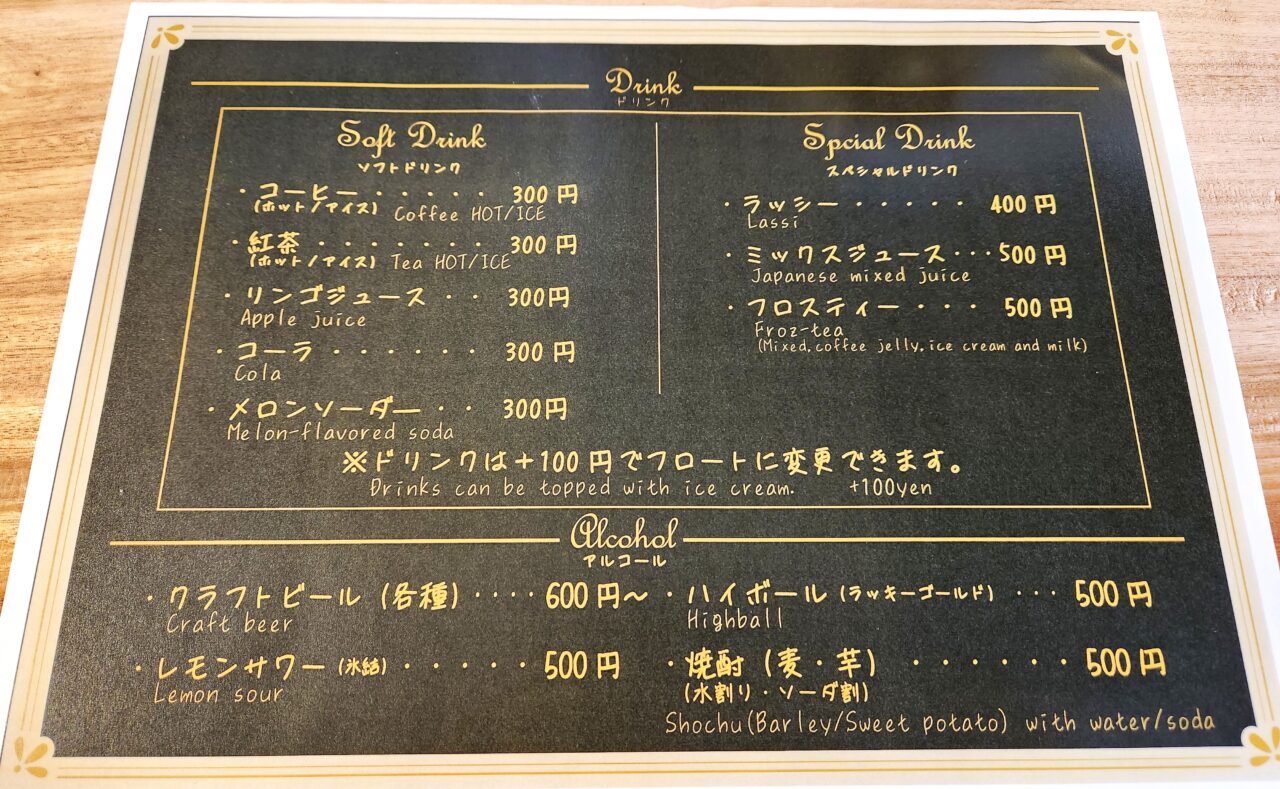 Drink
ドリンク
Soft Drink
ソフトドリンク
・コーヒー・・・・・ 300円
(ホット/アイス) Coffee HOT/ICE
・紅茶・・・・・・・ 300円
(ホット/アイス) Tea HOT/ICE
・リンゴジュース・・ 300円
Apple juice
・コーラ・・・・・・ 300円
Cola
・メロンソーダー・・ 300円
Melon-flavored soda
Spcial Drink
スペシャルドリンク
・ラッシー・・・・・ 400円
Lassi
・ミックスジュース・・・500円
Japanese mixed juice
・フロスティー・・・ 500円
Froz-tea
(Mixed,coffee jelly,ice cream and milk)
※ドリンクは+100円でフロートに変更できます。
Drinks can be topped with ice cream. +100yen
Alcohol
アルコール
・クラフトビール(各種)・・・・600円〜
Craft beer
・レモンサワー(氷結)・・・・・500円
Lemon sour
・ハイボール(ラッキーゴールド)・・・500円
Highball
・焼酎(麦・芋)・・・・・・500円
(水割り・ソーダ割)
Shochu(Barley/Sweet potato) with water/soda